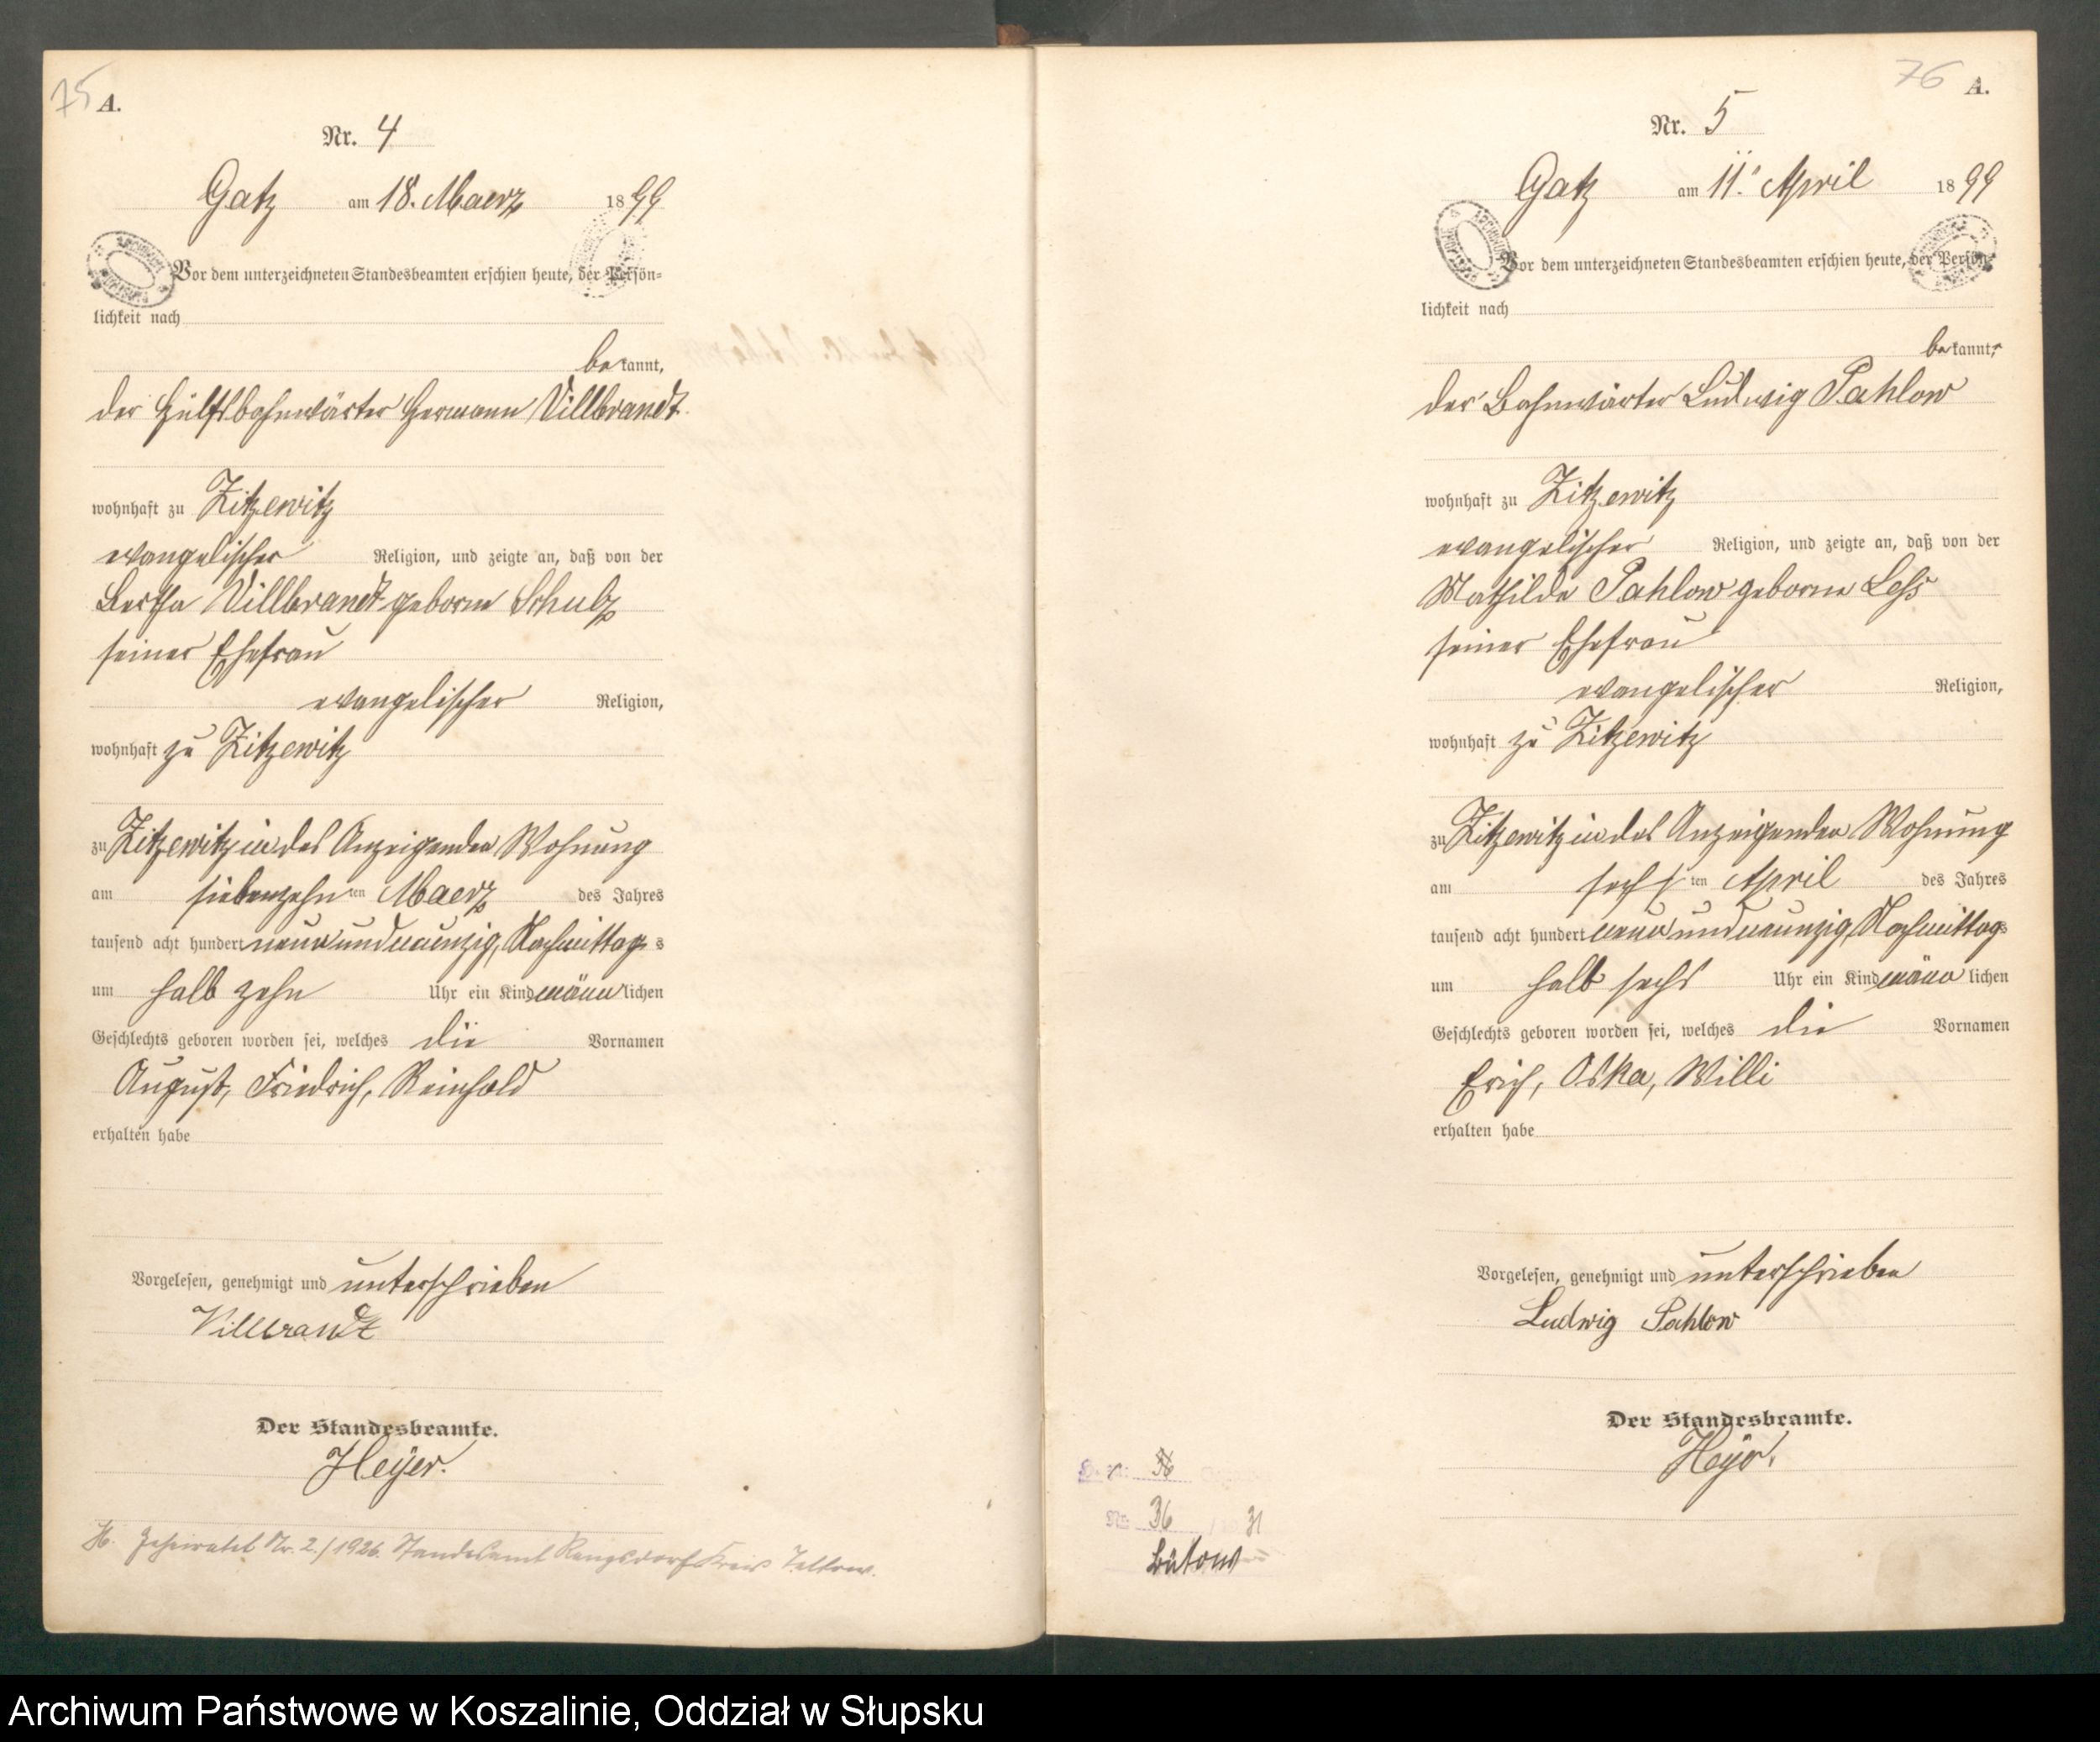 75 A.
Nr. 4
Gatz am 18. Maerz 1899
Vor dem unterzeichneten Standesbeamten erschien heute, der Persön=
lichkeit nach
bekannt,
der Hülfsbahnwärter Hermann Villbrandt
wohnhaft zu Zitzewitz
evangelischer Religion, und zeigte an, daß von der
Bertha Villbrandt geborne Schulz
seiner Ehefrau
evangelischer Religion,
wohnhaft zu Zitzewitz
zu Zitzewitz in des Anzeigenden Wohnung
am siebenzehnten Maerz des Jahres
tausend acht hundert neunundneunzig, Nachmittags
um halb zehn Uhr ein Kind männlichen
Geschlechts geboren worden sei, welches die Vornamen
August, Friedrich, Reinhold
erhalten habe
Vorgelesen, genehmigt und unterschrieben
Villbrandt
Der Standesbeamte.
Heyer.
H. Geheiratet Nr. 2./1926. Standesamt Rangsdorf Kreis Teltow.
76 A.
Nr. 5
Gatz am 11. April 1899
Vor dem unterzeichneten Standesbeamten erschien heute, der Persön=
lichkeit nach
bekannt,
der Bahnwärter Ludwig Pahlow
wohnhaft zu Zitzewitz
evangelischer Religion, und zeigte an, daß von der
Mathilde Pahlow geborne Less
seiner Ehefrau
evangelischer Religion,
wohnhaft zu Zitzewitz
zu Zitzewitz in des Anzeigenden Wohnung
am sechsten April des Jahres
tausend acht hundert neunundneunzig, Nachmittags
um halb sechs Uhr ein Kind männlichen
Geschlechts geboren worden sei, welches die Vornamen
Erich, Oska, Willi
erhalten habe
Vorgelesen, genehmigt und unterschrieben
Ludwig Pahlow
Der Standesbeamte.
Heyer.
Nr. 36 / 31
Bütow
Archiwum Państwowe w Koszalinie, Oddział w Słupsku